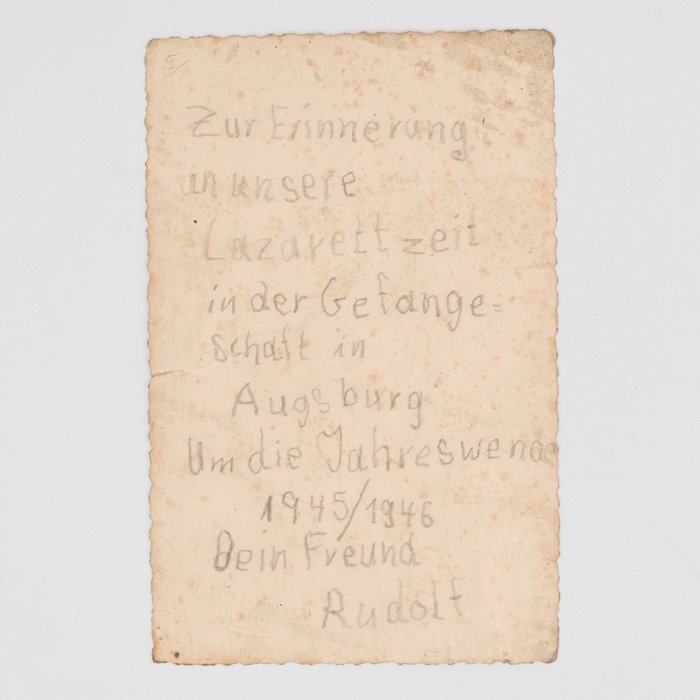 5/
Zur Erinnerung
an unsere
Lazarettzeit
in der Gefange=
schaft in
Augsburg
Um die Jahreswende
1945/1946
Dein Freund
Rudolf